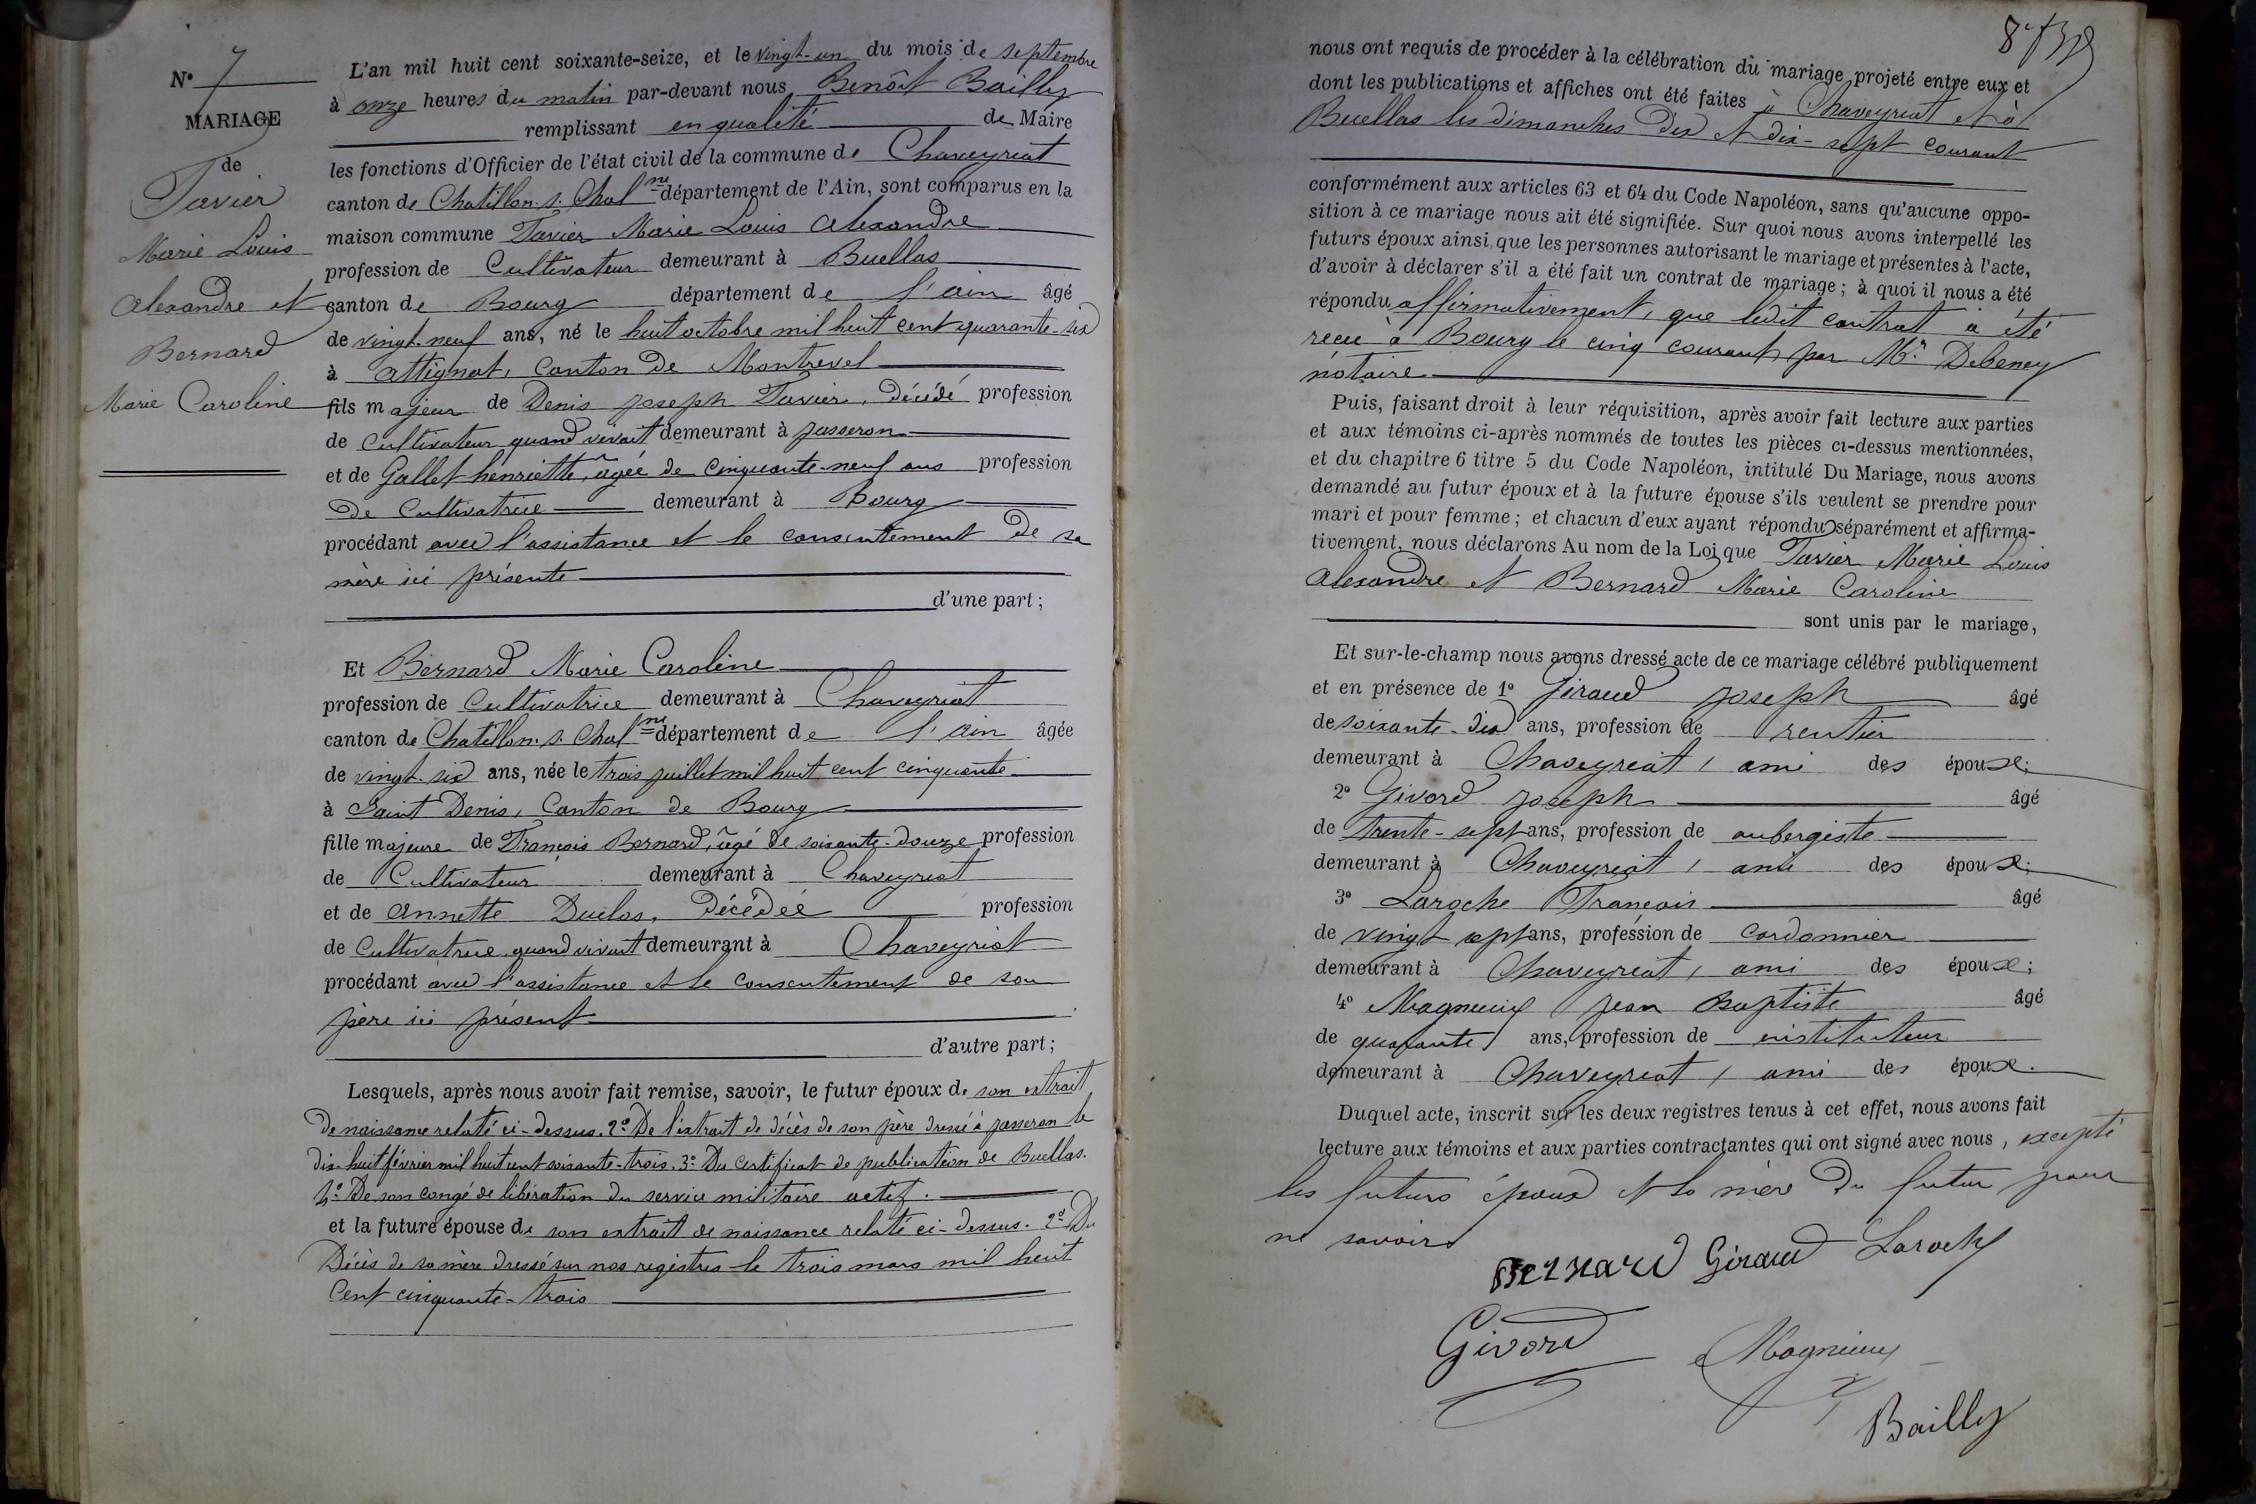 N° 7
MARIAGE
de
Tavier
Marie Louis
Alexandre et
Bernard
Marie Caroline
L'an mil huit cent soixante-seize, et le vingt-un du mois de septembre
à onze heures du matin par-devant nous Benôit Bailly
remplissant en qualité de Maire
les fonctions d'Officier de l'état civil de la commune de Chaveyriat
canton de Chatillon s. Chal.ne département de l'Ain, sont comparus en la
maison commune Tavier Marie Louis Alexandre
profession de Cultivateur demeurant à Buellas
canton de Bourg département de l'ain âgé
de vingt-neuf ans, né le huit octobre mil huit cent quarante-six
à Attignat, Canton de Montrevel
fils majeur de Denis Joseph Tavier, décédé profession
de cultivateur quand vivait demeurant à Jasseron
et de Gallet henriette, agée de cinquante-neuf ans profession
de Cultivatrice demeurant à Bourg
procédant avec l'assistance et le consentement de sa
mère ici présente
d'une part;
Et Bernard Marie Caroline
profession de Cultivatrice demeurant à Chaveyriat
canton de Chatillon s. Chal.ne département de l'ain âgée
de vingt-six ans, née le trois juillet mil huit cent cinquante
à Saint Denis, Canton de Bourg
fille majeure de François Bernard, agé de soixante-douze profession
de Cultivateur demeurant à Chaveyriat
et de Annette Duclos, décédée profession
de Cultivatrice quand vivait demeurant à Chaveyriat
procédant avec l'assistance et le consentement de son
père ici présent
d'autre part;
Lesquels, après nous avoir fait remise, savoir, le futur époux de son extrait
de naissance relaté ci-dessus. 2° De l'extrait de décès de son père dressé à Jasseron le
dix-huit février mil huit cent soixante-trois. 3° Du certificat de publication de Buellas.
4° De son congé de libération du service militaire actif.
et la future épouse de son extrait de naissance relaté ci-dessus. 2° Du
Décès de sa mère dressé sur nos registres le trois mars mil huit
cent cinquante-trois
nous ont requis de procéder à la célébration du mariage projeté entre eux et
dont les publications et affiches ont été faites à Chaveyriat et à
Buellas les dimanches dix et dix-sept courant
conformément aux articles 63 et 64 du Code Napoléon, sans qu'aucune oppo-
sition à ce mariage nous ait été signifiée. Sur quoi nous avons interpellé les
futurs époux ainsi que les personnes autorisant le mariage et présentes à l'acte,
d'avoir à déclarer s'il a été fait un contrat de mariage; à quoi il nous a été
répondu affirmativement, que ledit contrat a été
reçu à Bourg le cinq courant par Mr. Debeney
notaire
Puis, faisant droit à leur réquisition, après avoir fait lecture aux parties
et aux témoins ci-après nommés de toutes les pièces ci-dessus mentionnées,
et du chapitre 6 titre 5 du Code Napoléon, intitulé Du Mariage, nous avons
demandé au futur époux et à la future épouse s'ils veulent se prendre pour
mari et pour femme; et chacun d'eux ayant répondu séparément et affirma-
tivement, nous déclarons Au nom de la Loi que Tavier Marie Louis
Alexandre et Bernard Marie Caroline
sont unis par le mariage,
Et sur-le-champ nous avons dressé acte de ce mariage célébré publiquement
et en présence de 1° Giraud Joseph âgé
de soixante-dix ans, profession de rentier
demeurant à Chaveyriat, ami des époux;
2° Givord Joseph âgé
de trente-sept ans, profession de aubergiste
demeurant à Chaveyriat, ami des époux;
3° Laroche François âgé
de vingt sept ans, profession de cordonnier
demeurant à Chaveyriat, ami des époux;
4° Magnieux Jean Baptiste âgé
de quarante ans, profession de instituteur
demeurant à Chaveyriat, ami des époux.
Duquel acte, inscrit sur les deux registres tenus à cet effet, nous avons fait
lecture aux témoins et aux parties contractantes qui ont signé avec nous, excepté
les futurs époux et la mère du futur pour
ne savoir
Bernard Giraud Laroche
Givord Magnieux
Bailly